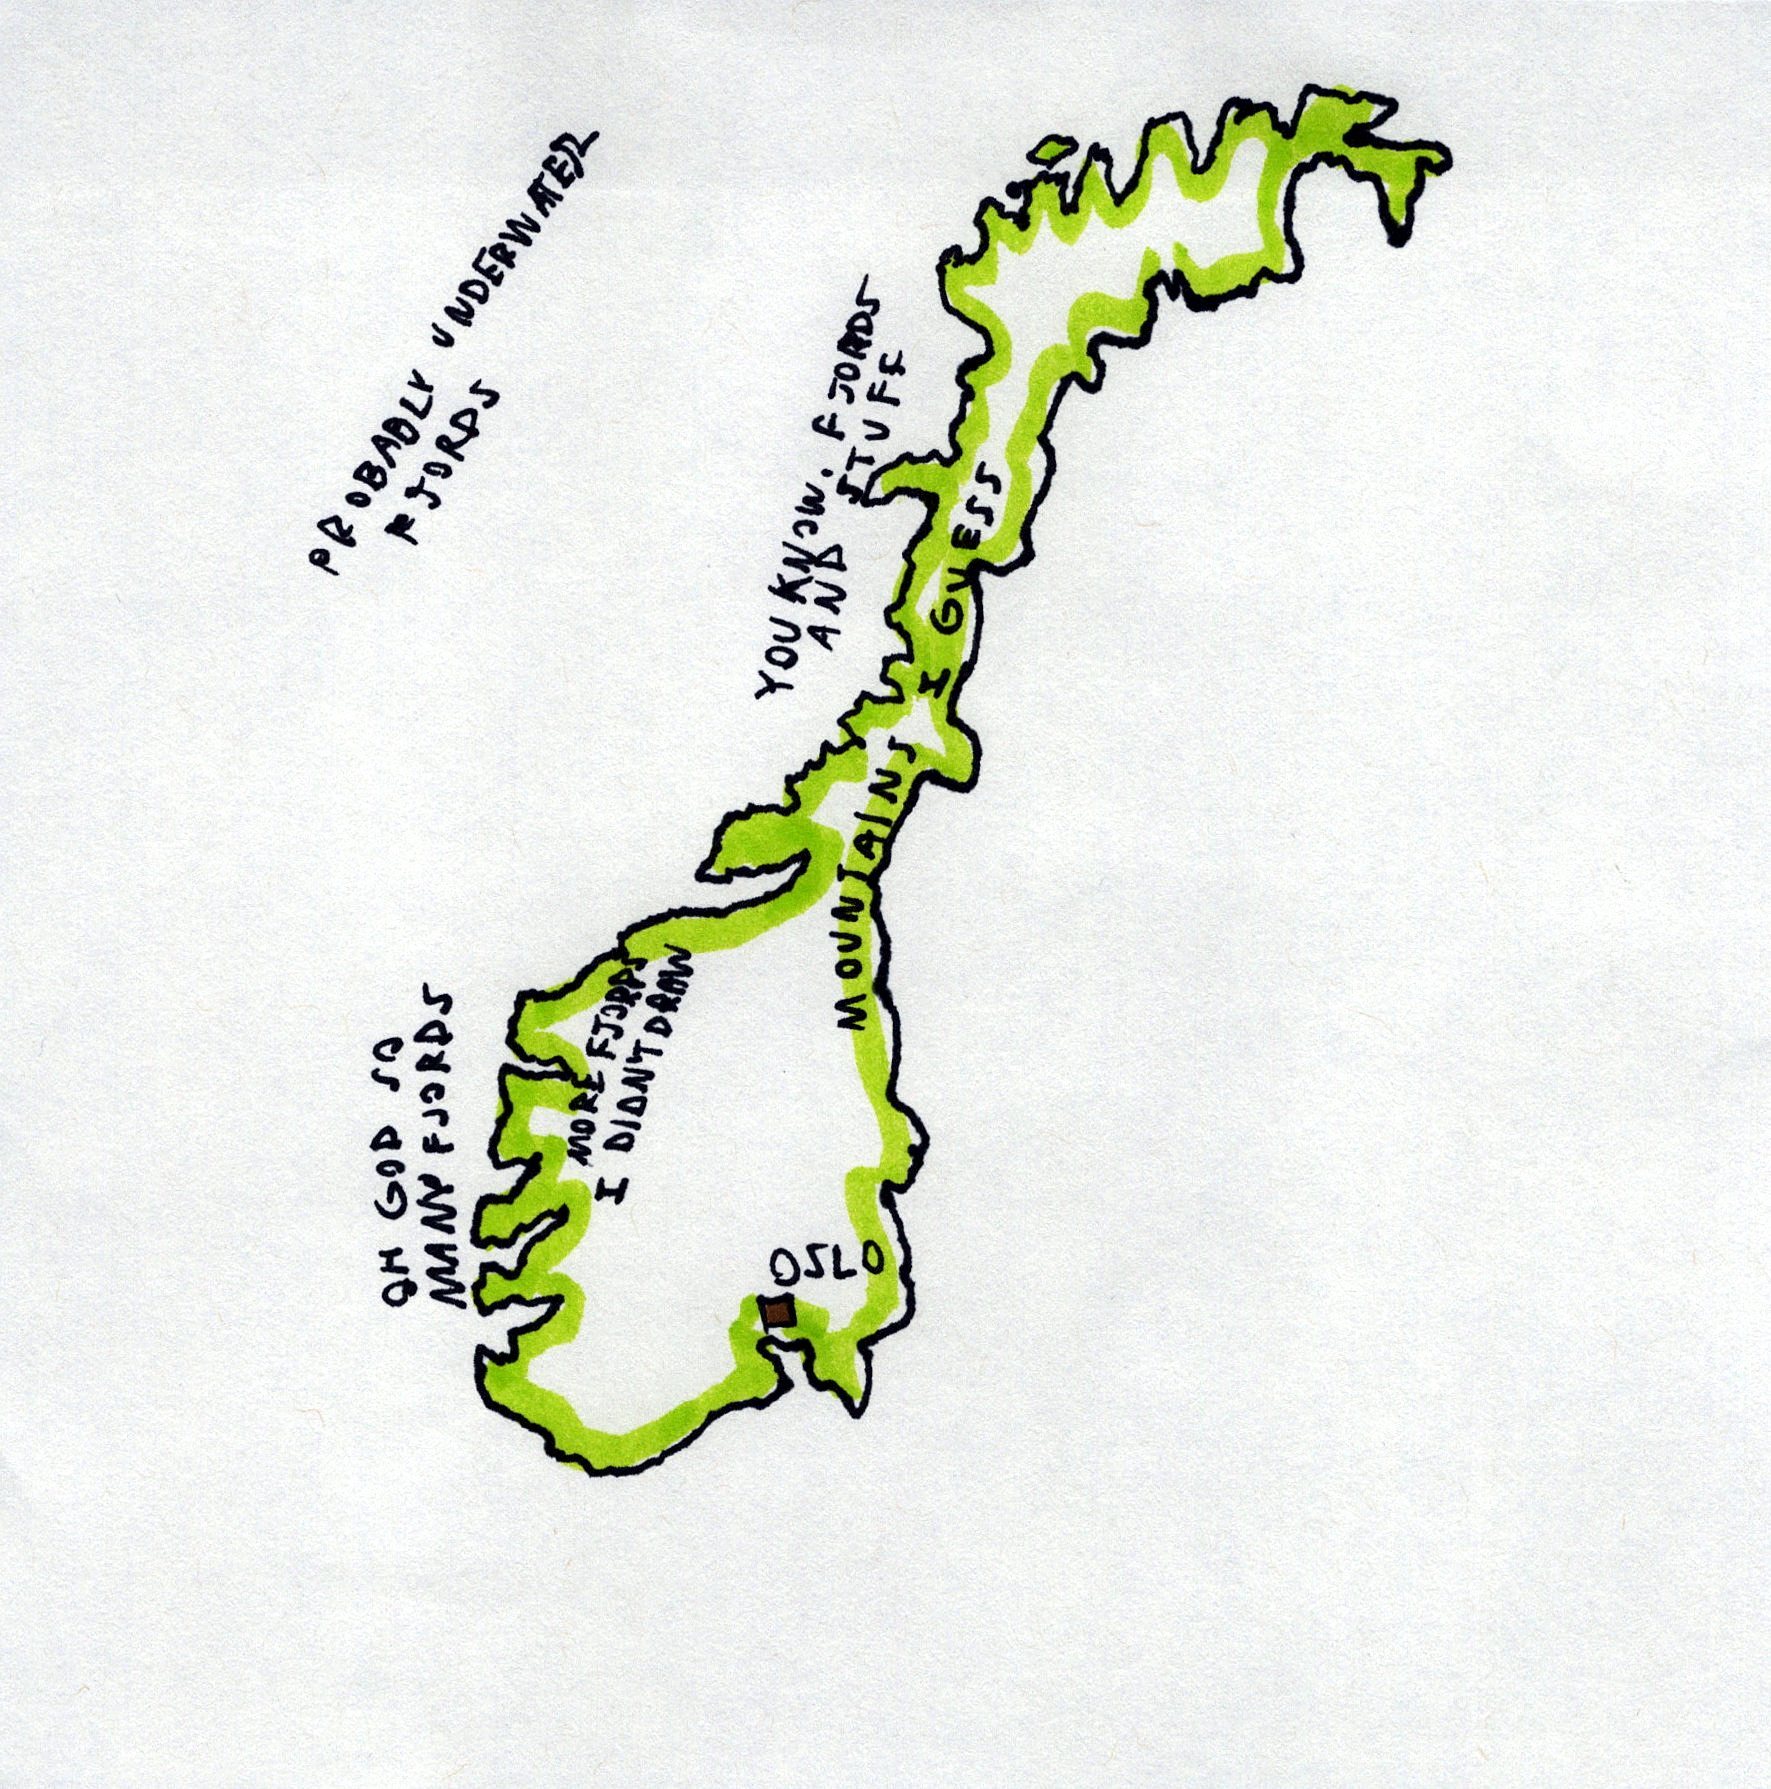 PROBABLY UNDERWATER
FJORDS
YOU KNOW. FJORDS
AND STUFF
MOUNTAINS I GUESS
OH GOD SO
MANY FJORDS
MORE FJORDS
I DIDN'T DRAW
OSLO